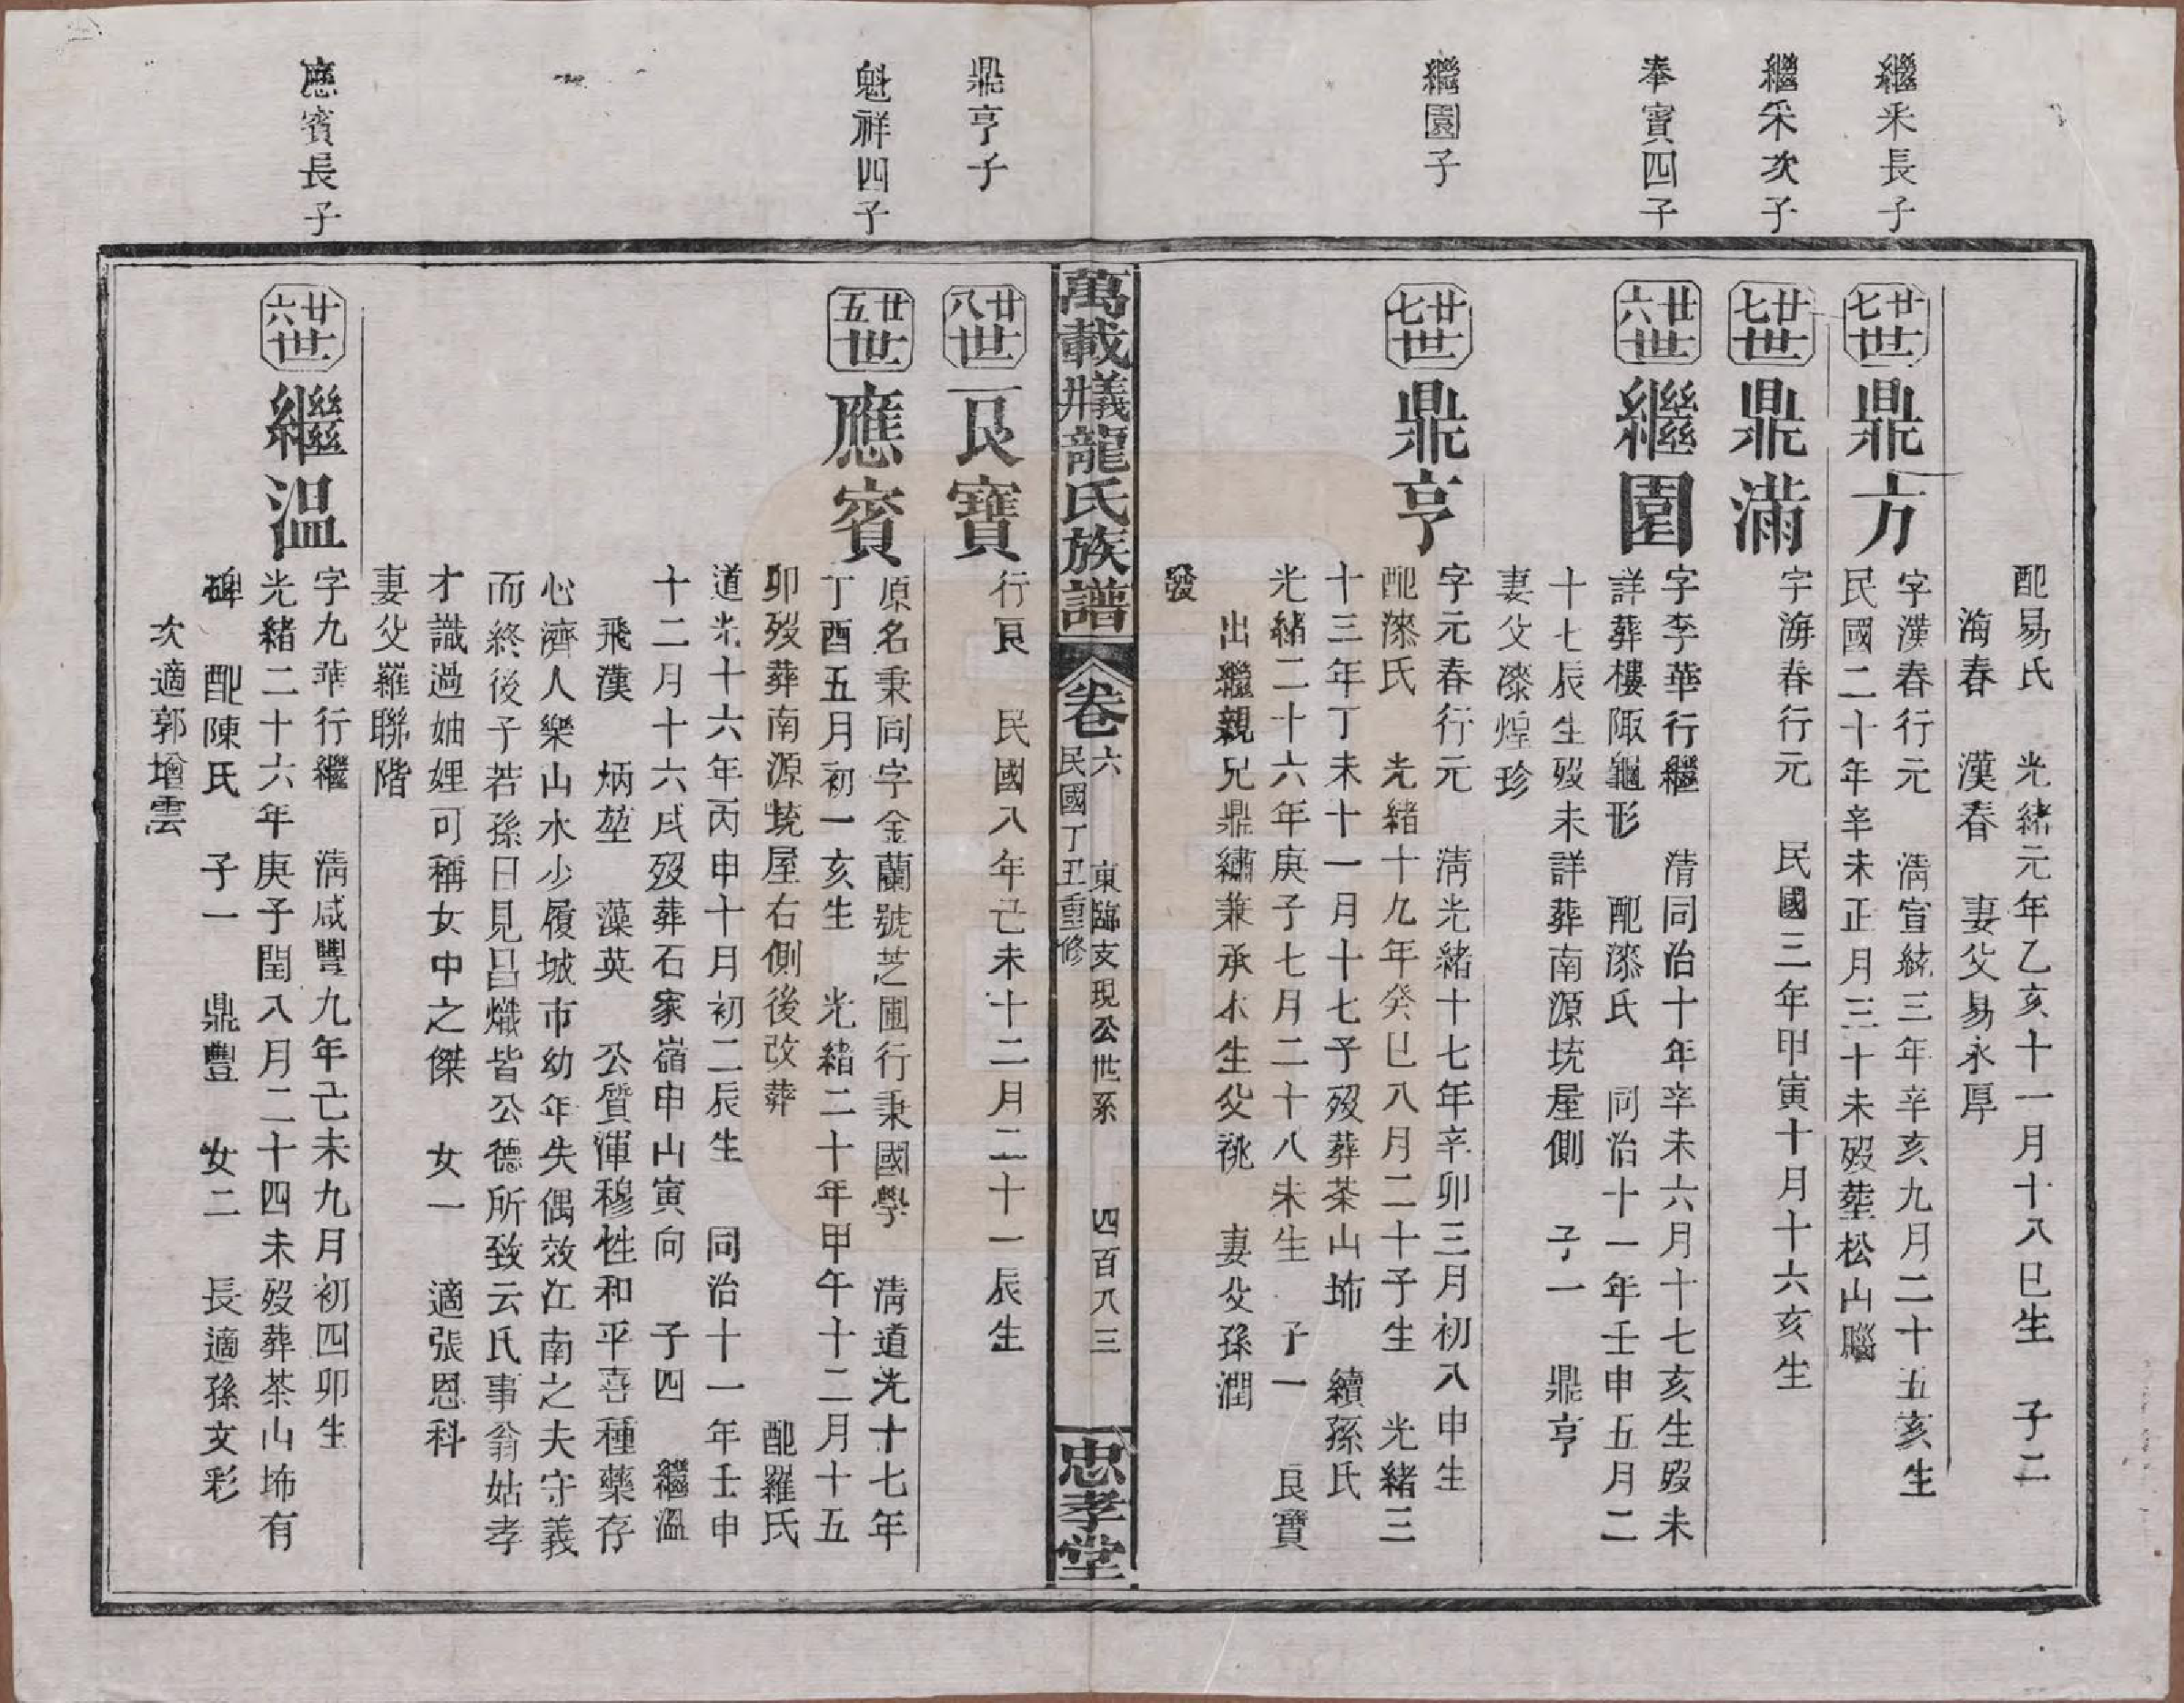 配易氏　光緒元年乙亥十一月十八巳生　子二
海春　漢春　妻父易永厚
繼采長子
廿七世
鼎方
字漢春行元　清宣統三年辛亥九月二十五亥生
民國二十年辛未正月三十未歿塟松山腦
繼采次子
廿七世
鼎滿
字海春行元　民國三年甲寅十月十六亥生
奉寶四子
廿六世
繼園
字李華行繼　清同治十年辛未六月十七亥生歿未
詳葬樓陬龜形　配漆氏　同治十一年壬申五月二
十七辰生歿未詳葬南源垅屋側　子一　鼎亨
妻父漆煌珍
繼園子
廿七世
鼎亨
字元春行元　清光緒十七年辛卯三月初八申生
配漆氏　光緒十九年癸巳八月二十子生　光緒三
十三年丁未十一月十七子歿葬茶山㘵　續孫氏
光緒二十六年庚子七月二十八未生　子一　良寶
出繼親兄鼎繡兼承本生父祧　妻父孫潤
發
萬載牂義龍氏族譜
卷六　東臨支現公世系　四百八三
民國丁丑重修
忠孝堂
鼎亨子
廿八世
良寶
行良　民國八年己未十二月二十一辰生
魁祥四子
廿五世
應賓
原名秉同字金蘭號芝圃行秉國學　清道光十七年
丁酉五月初一亥生　光緒二十年甲午十二月十五
卯歿葬南源垅屋右側後改葬　配羅氏
道光十六年丙申十月初二辰生　同治十一年壬申
十二月十六戌歿葬石家嶺申山寅向　子四　繼溫
飛漢　炳堃　藻英　公質渾穆性和平喜種藥存
心濟人樂山水少履城市幼年失偶效江南之夫守義
而終後子若孫日見昌熾皆公德所致云氏事翁姑孝
才識過妯娌可稱女中之傑　女一　適張恩科
妻父羅聯階
應賓長子
廿六世
繼溫
字九華行繼　清咸豐九年己未九月初四卯生
光緒二十六年庚子閏八月二十四未歿葬茶山㘵有
碑　配陳氏　子一　鼎豐　女二　長適孫文彩
次適郭增雲